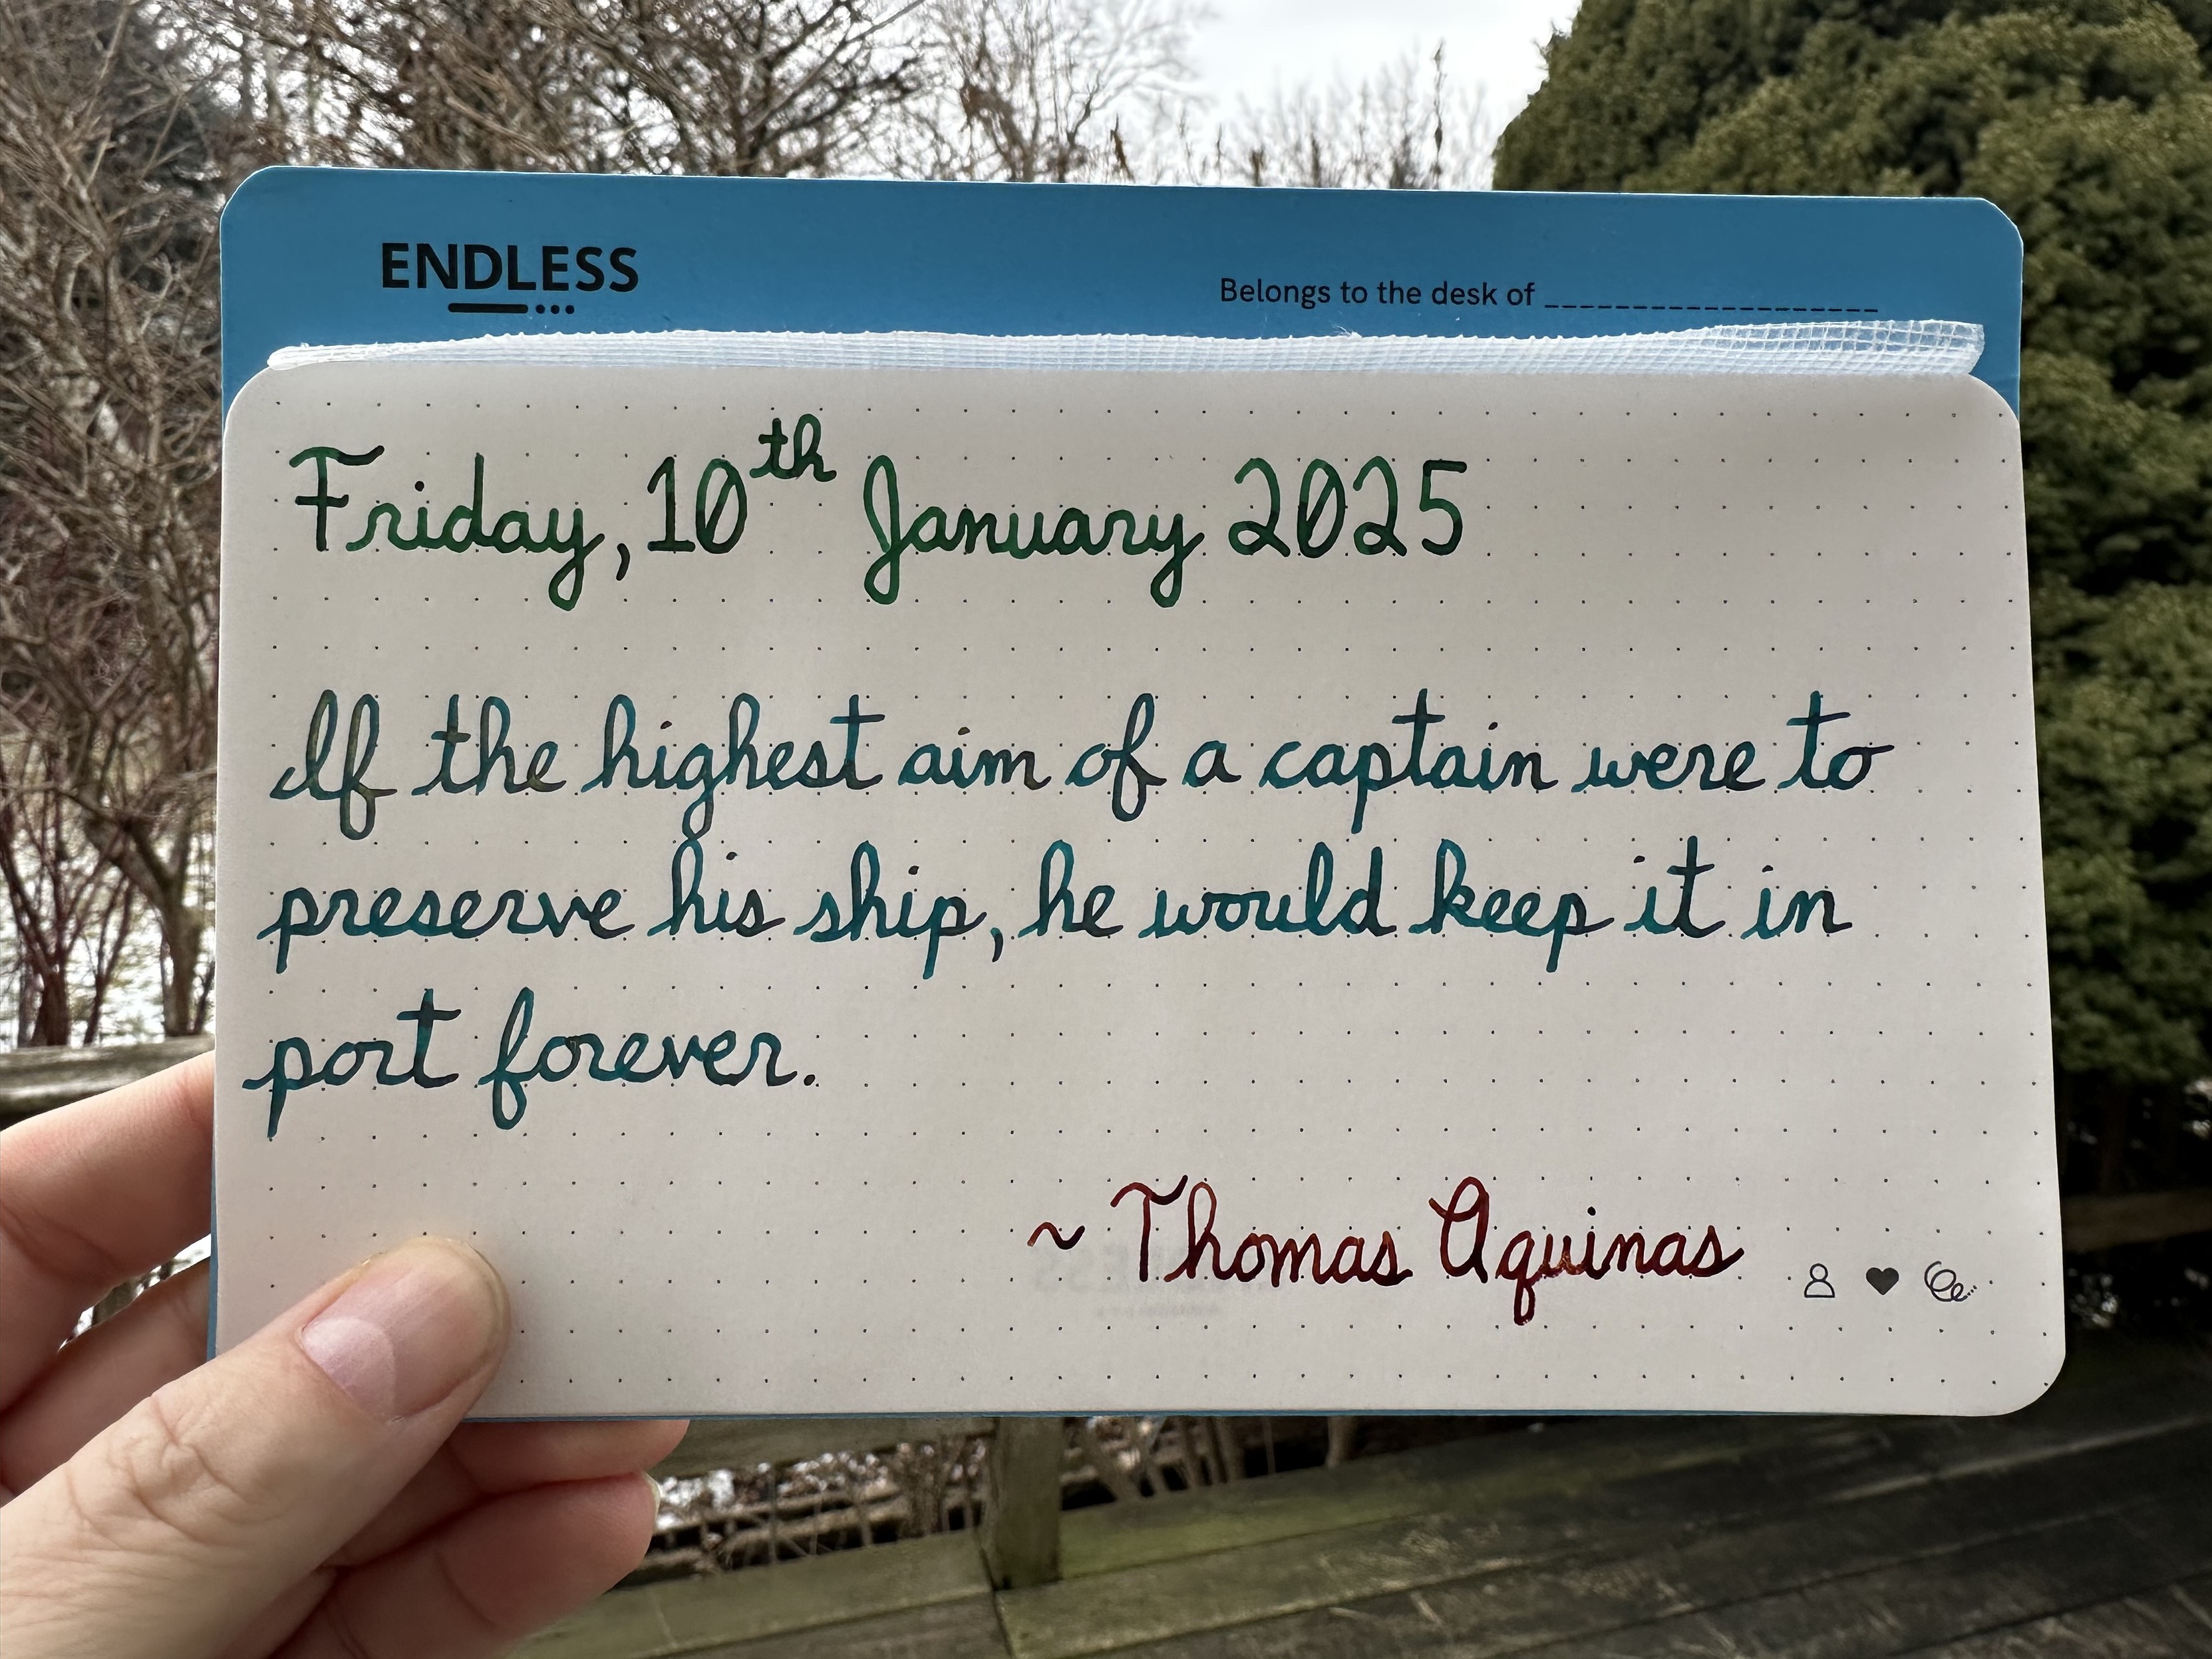 ENDLESS
Belongs to the desk of ___________________
Friday, 10th January 2025
If the highest aim of a captain were to
preserve his ship, he would keep it in
port forever.
~ Thomas Aquinas